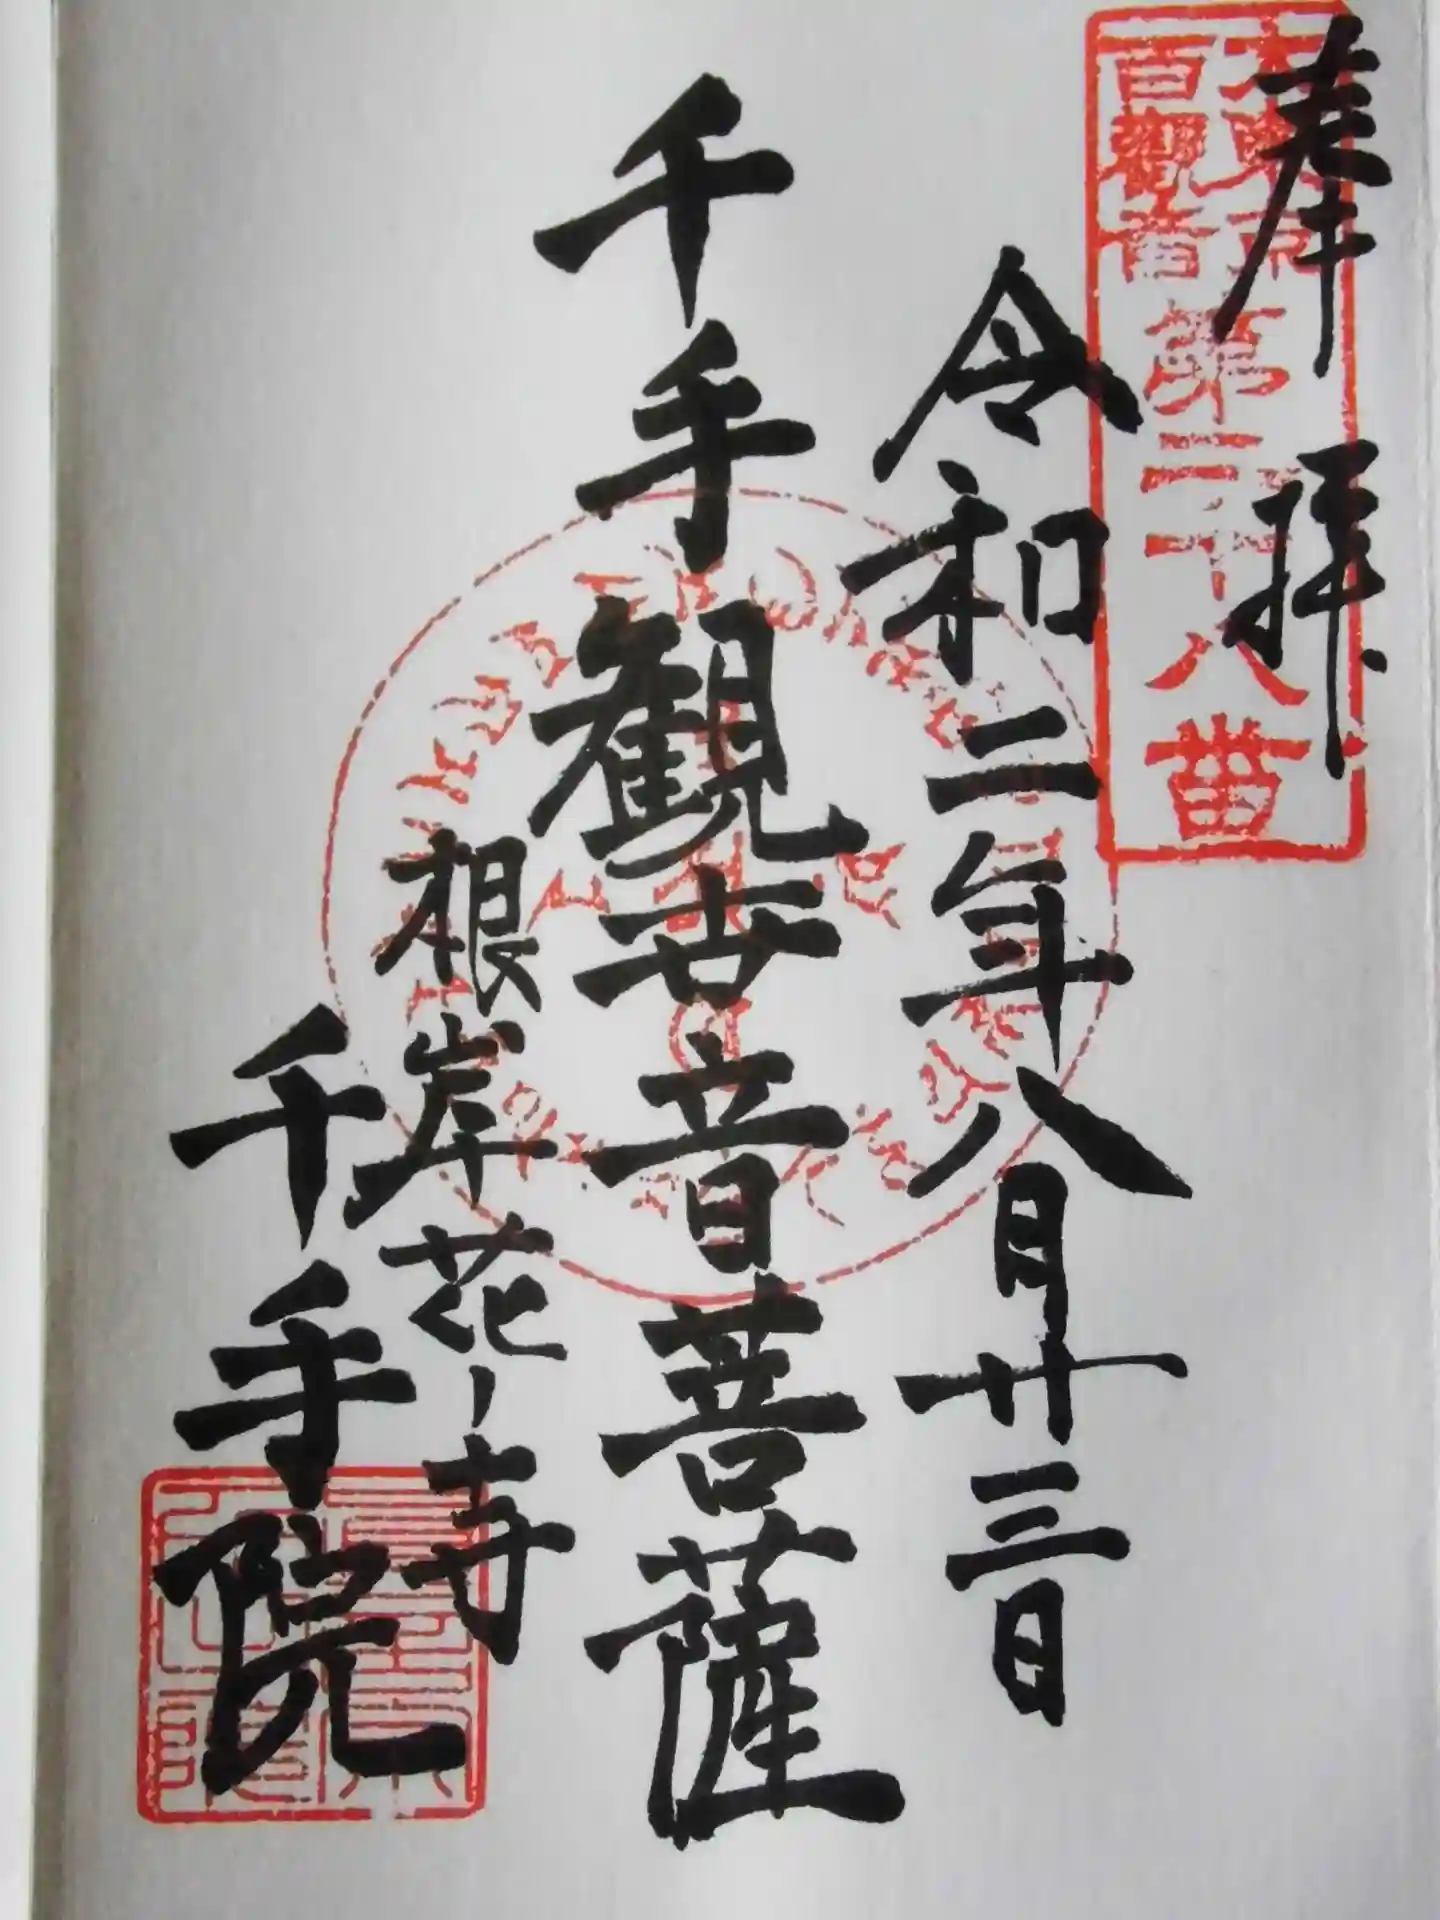 奉拝
大東京
百観音
第三十八番
令和二年八月廿三日
千手観世音菩薩
根岸花ノ寺
千手院